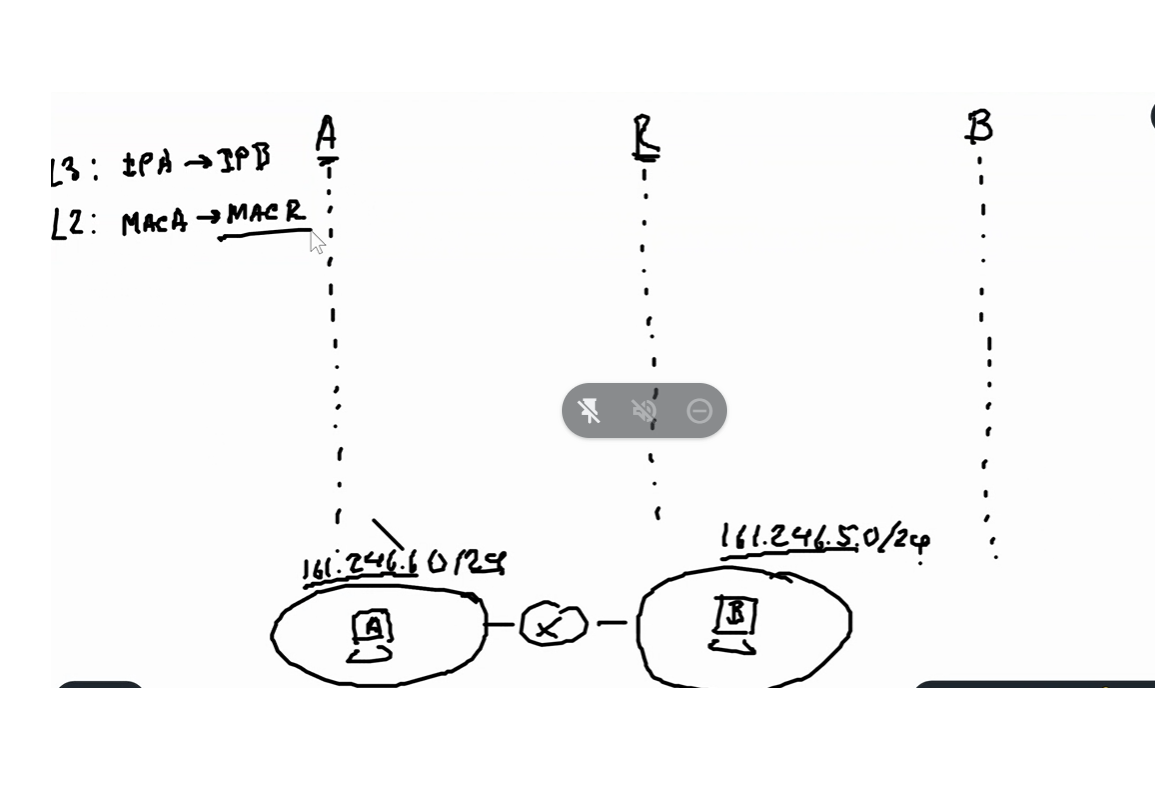 A R B
L3: IPA → IPB
L2: MACA → MACR
161.246.6.0/24
161.246.5.0/24
A
B